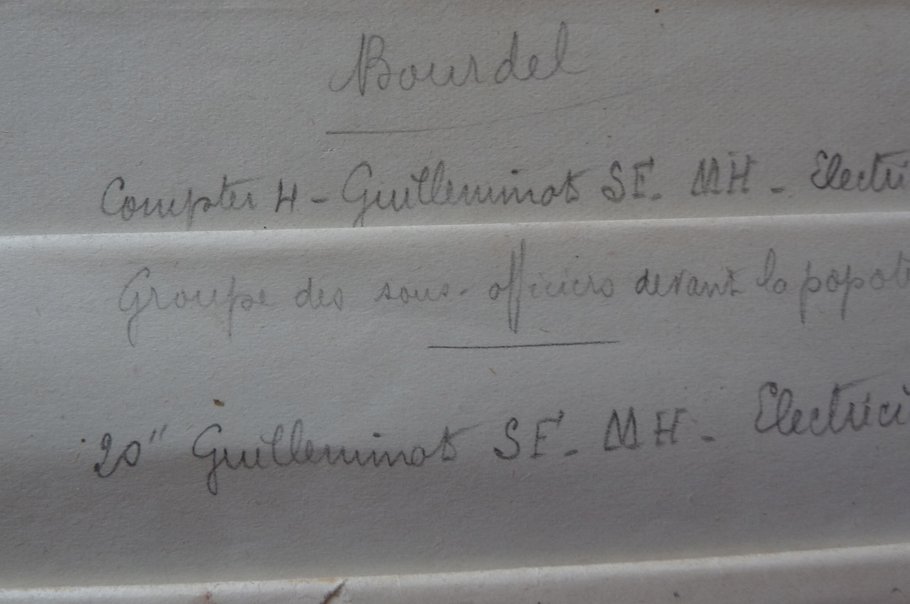 Bourdel
Compter 4 - Guilleminot SE. MH - Electri
Groupe des sous-officiers devant la popot
20" Guilleminot SE. MH - Electrici